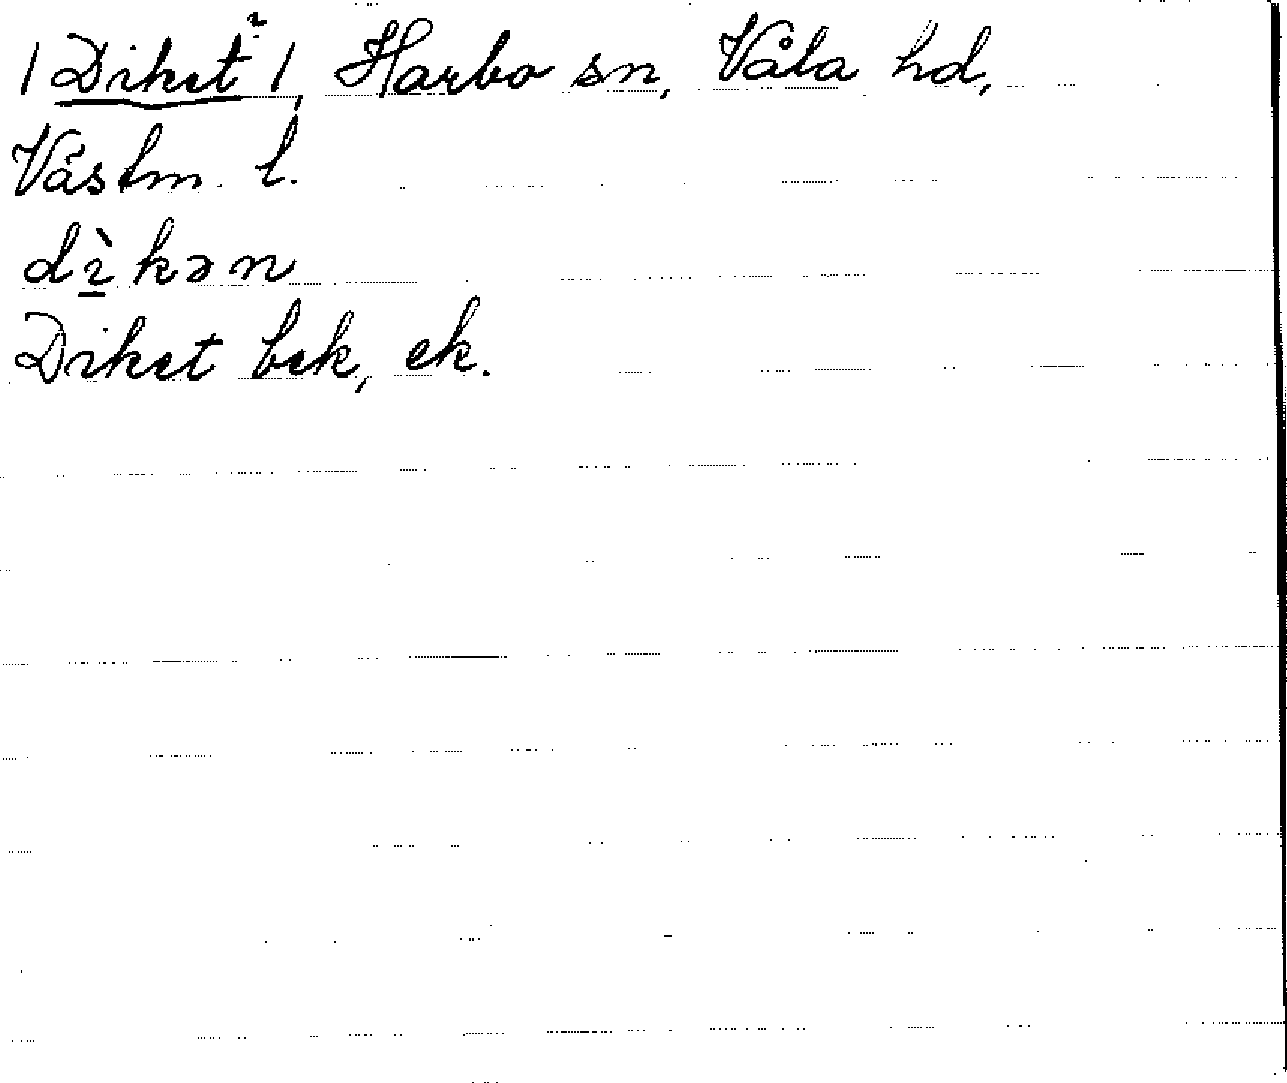 /Diket²/, Harbo sn, Våla hd,
Västm. l.
dı̳̀kən
Diket bek, ek.